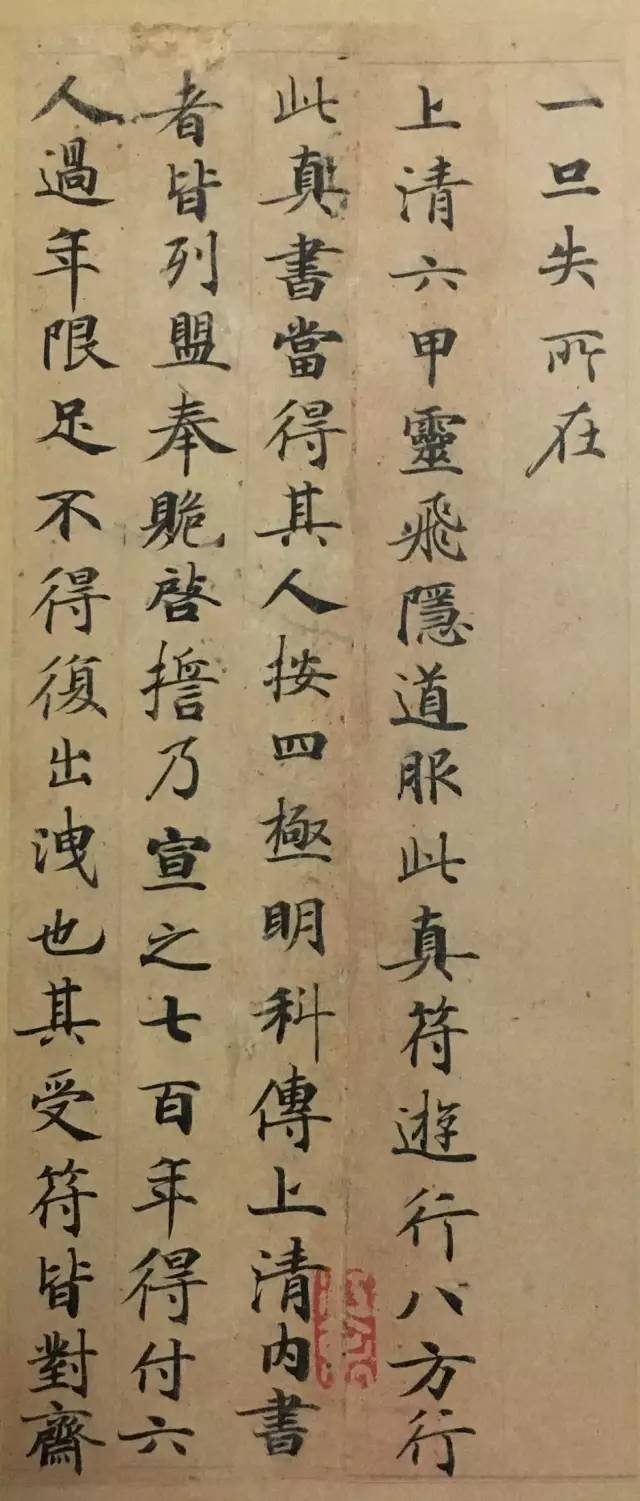 一旦失所在
上清六甲靈飛隱道服此真符遊行八方行
此真書當得其人按四極明科傳上清內書
者皆列盟奉贐啓誓乃宣之七百年得付六
人過年限足不得復出洩也其受符皆對齋